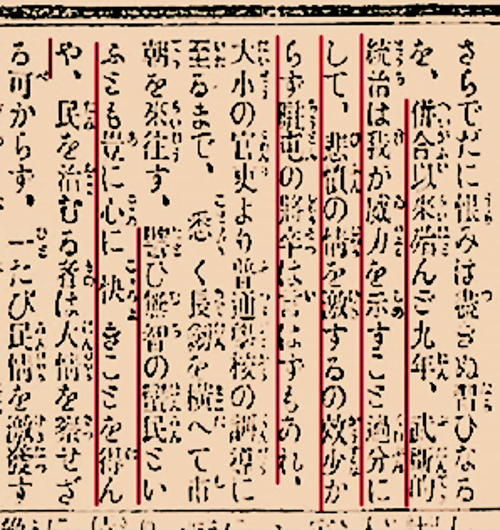 さらでだに恨みは喪さぬ習ひなる
を、併合以来殆んど九年、武断的
統治は我が威力を示すこと過分に
して、悲憤の情を激するの效少か
らず駐屯の將卒は言はずもあれ、
大小の官吏より普通學校の訓導に
至るまで、悉く長劒を横へて市
朝を來往す、譬ひ無智の鮮民とい
ふとも豈に心に快きことを得ん
や、民を治むる者は人情を察せざ
る可からず、一たび民情を激發す